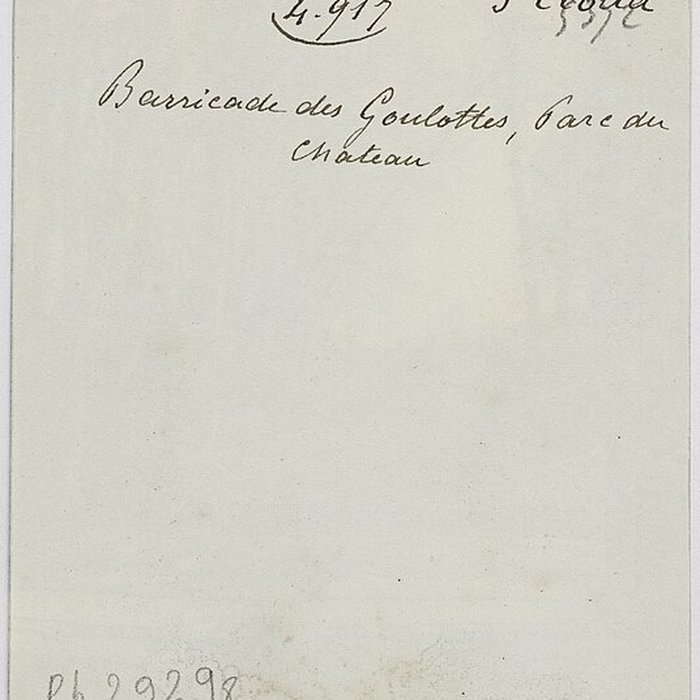 4.917
Barricade des Goulottes, Parc du
Chateau
Ph 29298